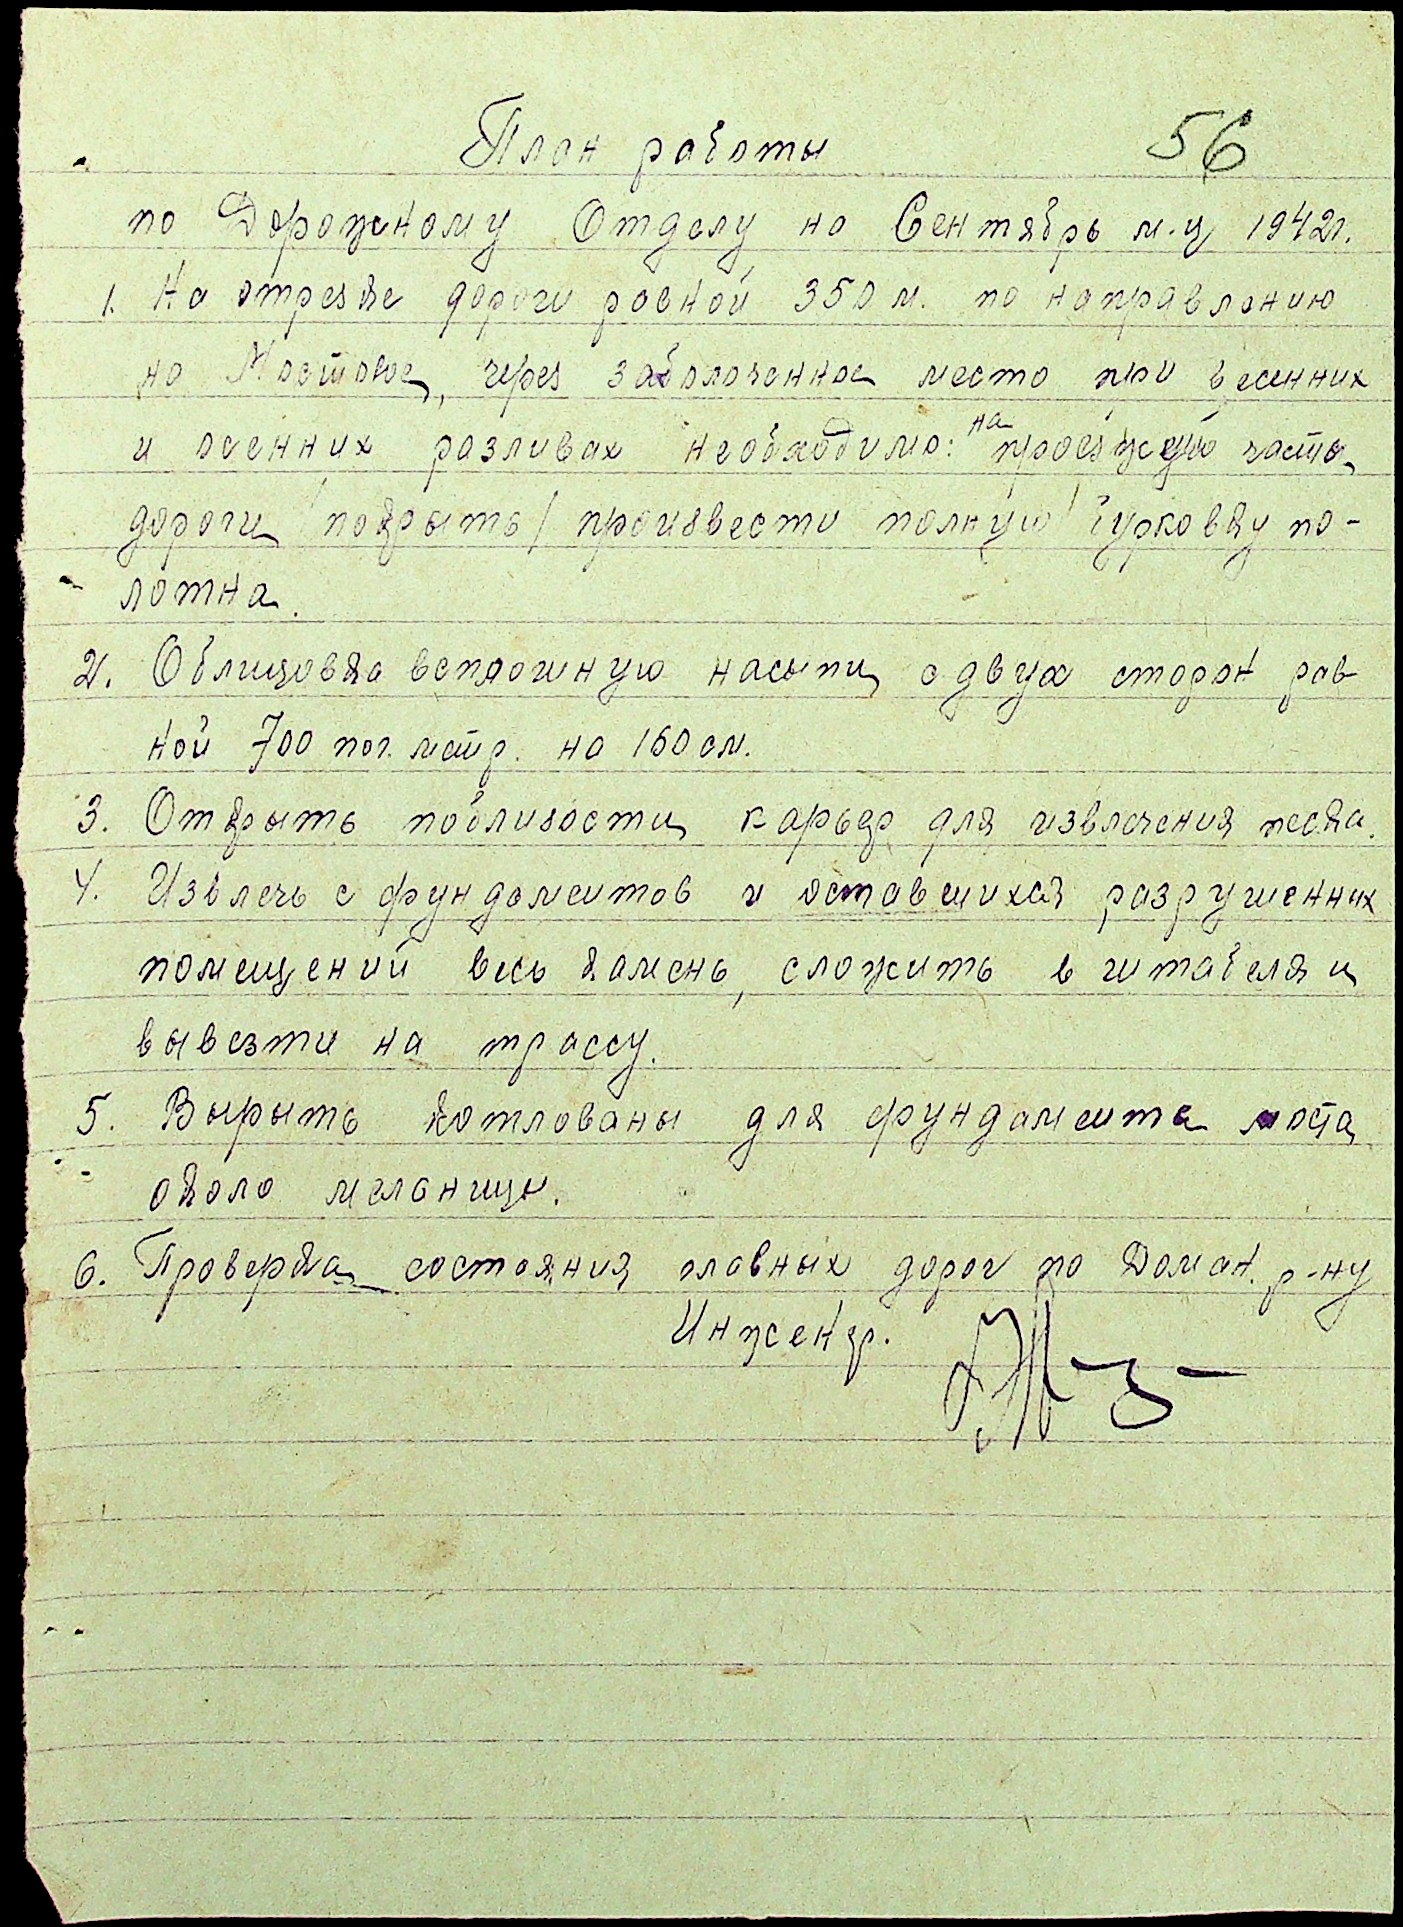 План работы
56
по Дорожному Отделу на Сентябрь м-ц 1942г.
1. На отрезке дороги равной 350 м. по направлению
на Мостовое, через заболоченное место при весенних
и осенних разливах необходимо: на проезжую часть
дороги /покрыть/ произвести полную бурковку по-
лотна.
2. Облицовка насыпи с двух сторон рав-
ной 700 пог. метр. на 160 см.
3. Открыть поблизости карьер для извлечения песка.
4. Извлечь с фундаментов и оставшихся разрушенных
помещений весь камень, сложить в штабеля и
вывезти на трассу.
5. Вырыть котлованы для фундамента моста
около мельницы.
6. Проверка состояния главных дорог по Доман. р-ну
Инженер.